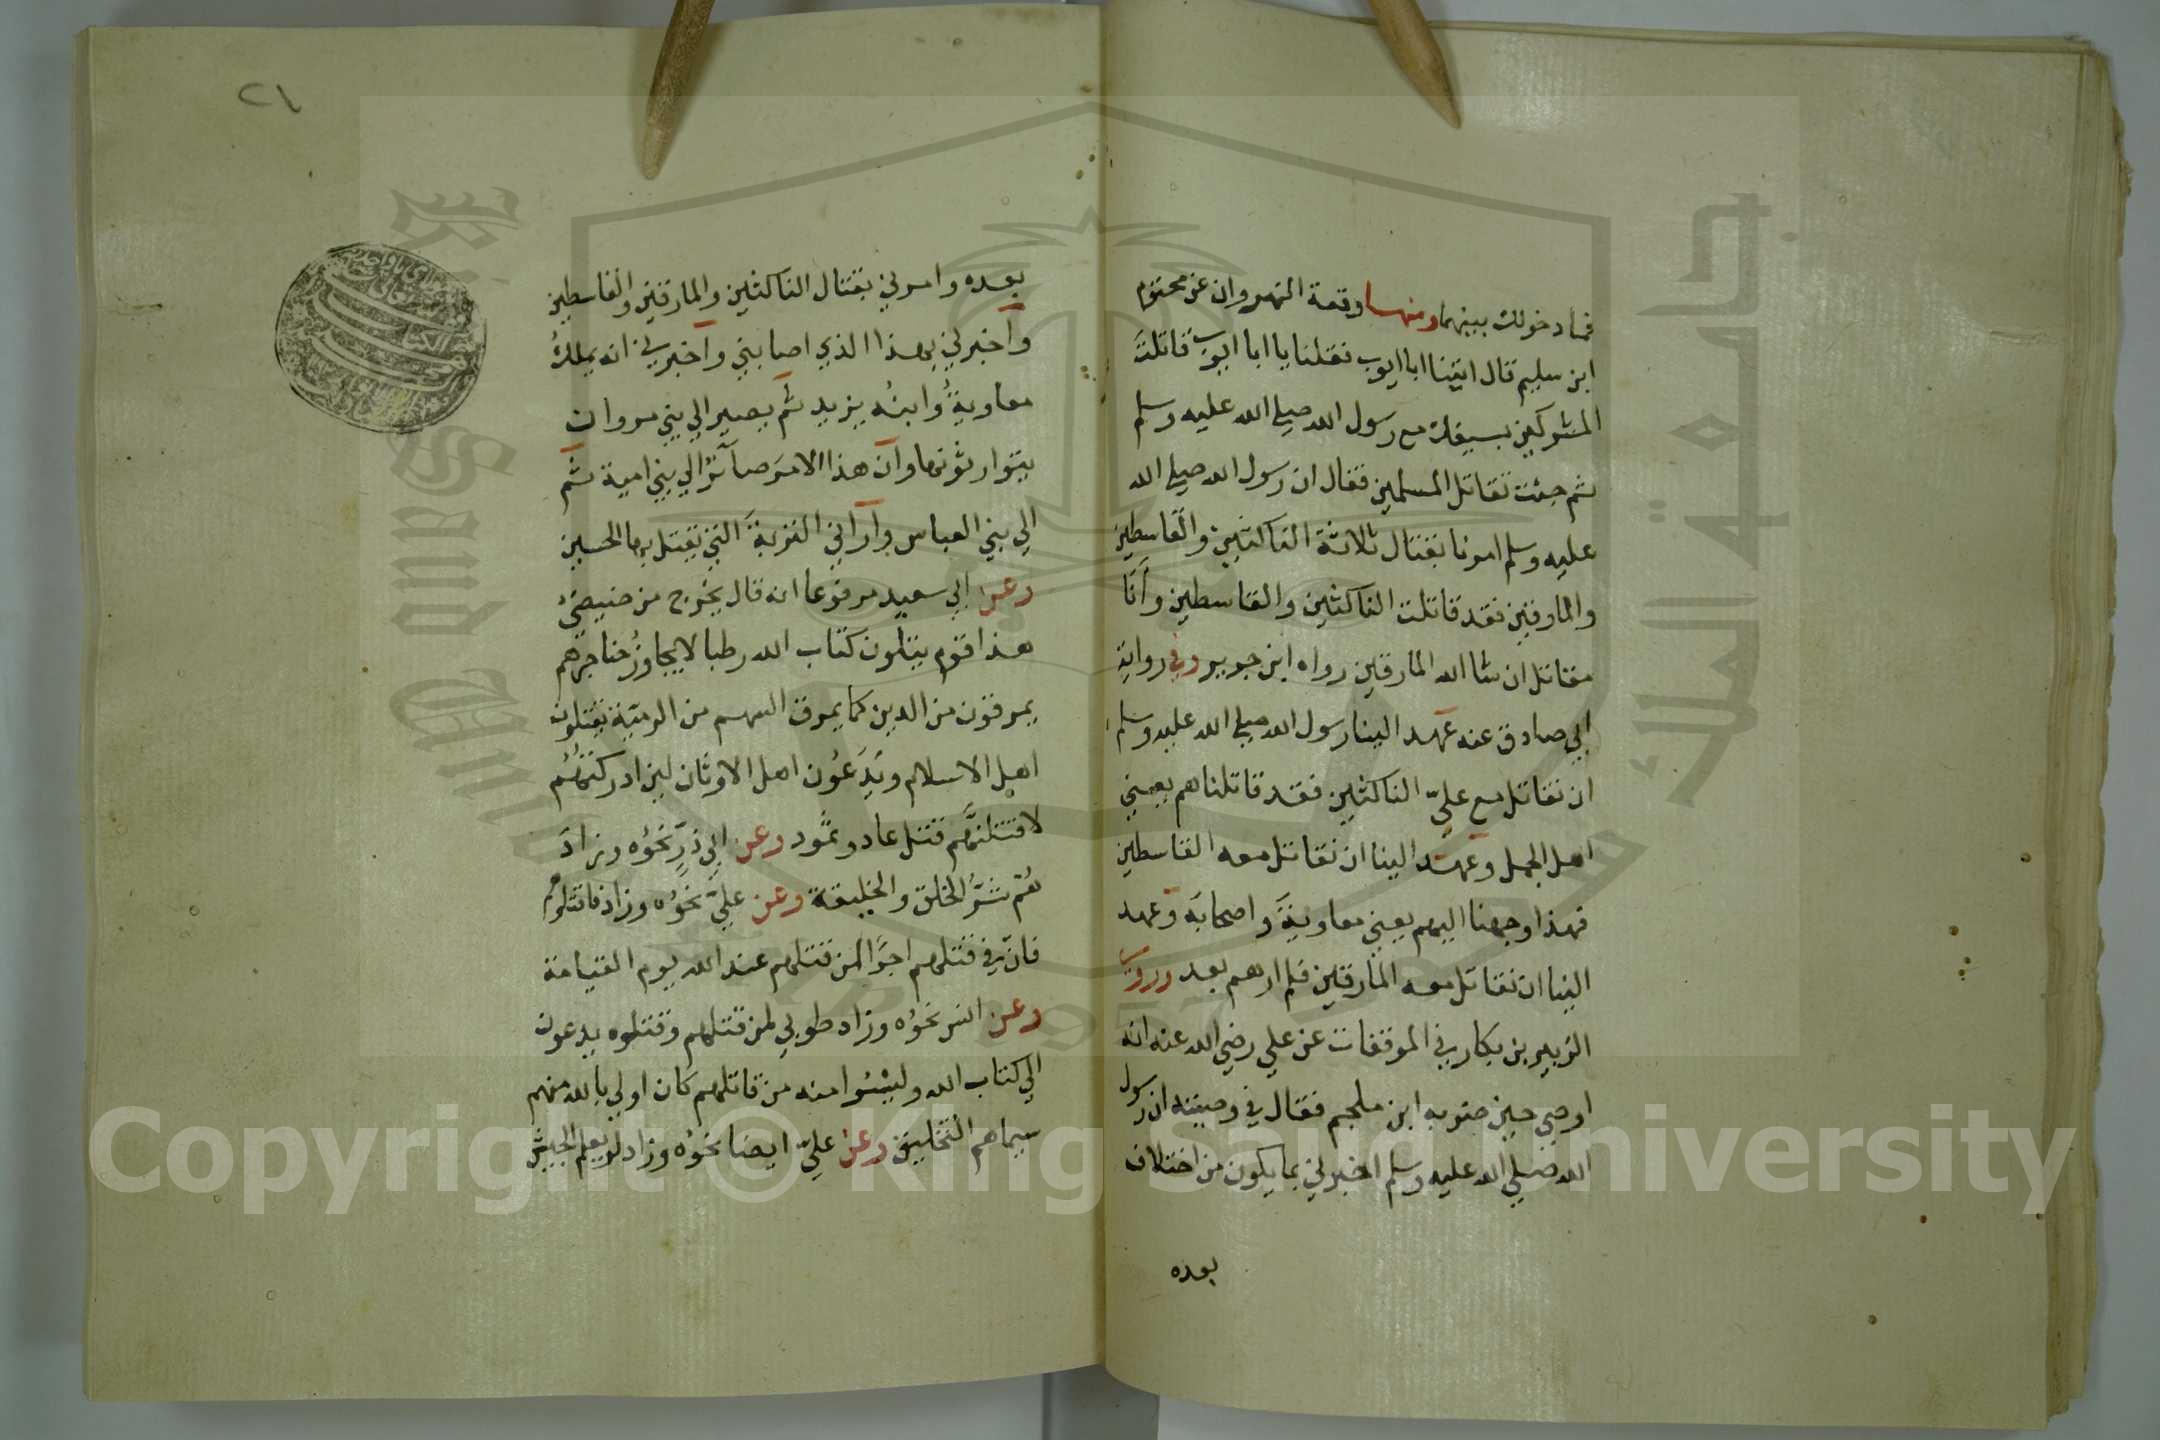 فما دخولك بينهما ومنها وقعة النهروان عن محتوم
ابن سليم قال اتينا ابا ايوب فقلنا يا ابا ايوب قاتلت
المشركين بسيفك مع رسول الله صلى الله عليه وسلم
ثم جئت تقاتل المسلمين فقال ان رسول الله صلى الله
عليه وسلم امرنا بقتال ثلاثة الناكثين والقاسطين
والمارقين فقد قاتلت الناكثين والقاسطين وأنا
مقاتل ان شا الله المارقين رواه ابن جرير وفي رواية
ابي صادق عنه عهد الينا رسول الله صلى الله عليه وسلم
ان نقاتل مع علي الناكثين فقد قاتلناهم يعني
اهل الجمل وعهد الينا ان نقاتل معه القاسطين
فهذا وجهنا اليهم يعني معاوية واصحابه وعهد
الينا ان نقاتل معه المارقين فلم ارهم بعد وروى
الزبير بن بكار في الموفقات عن علي رضي الله عنه انه
اوصي حين ضربه ابن ملجم فقال في وصيته ان رسول
الله صلي الله عليه وسلم اخبرني بما يكون من اختلاف
بعده
٢١
بعده وامرني بقتال الناكثين والمارقين والقاسطين
وأخبرني بهذا الذي اصابني وأخبرني انه يملك
معاوية وابنه يزيد ثم يصير الي بني مروان
يتوارثونها وأن هذا الامر صائر الي بني امية ثم
الي بني العباس وأراني التربة التي يقتل بها الحسين
وعن ابي سعيد مرفوعا انه قال يخرج من ضيضئ
هذا قوم يتلون كتاب الله رطبا لا يجاوز حناجرهم
يمرقون من الدين كما يمرق السهم من الرمية يقتلون
اهل الاسلام ويدعون اهل الاوثان لين ادركتهم
لاقتلنهم قتل عاد وثمود وعن ابي ذر نحوه وزاد
هم شر الخلق والخليقة وعن علي نحوه وزاد فاقتلوهم
فان في قتلهم اجرا لمن قتلهم عند الله يوم القيامة
وعن انس نحوه وزاد طوبي لمن قتلهم وقتلوه يدعون
الي كتاب الله وليسوا منه من قاتلهم كان اولي بالله منهم
سيماهم التحليق وعن علي ايضا نحوه وزاد لو يعلم الجيش
جامعة الملك سعود
King Saud University
1957
Copyright © King Saud University